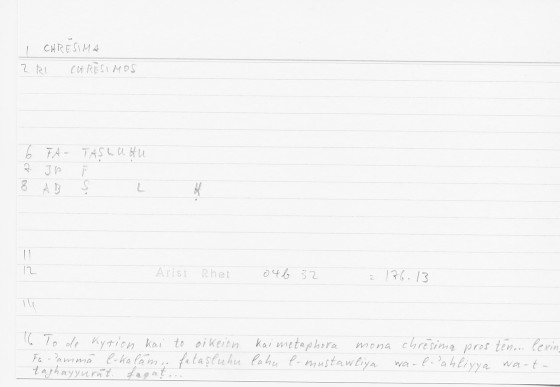 1 CHRĒSIMA
2 tri CHRĒSIMOS
6 FA- TAṢLUḤU
7 IM F
8 AB Ṣ L Ḥ
11
12 Arist Rhet 04b 32 = 176.13
14
16 To de kyrion kai to oikeion kai metaphora mona chrēsima pros tēn...
Fa-'ammā l-kalām.. fataṣluḥu lahu l-mustawliya wa-l-'ahliyya wa-t-
taghayyurāt faqaṭ...